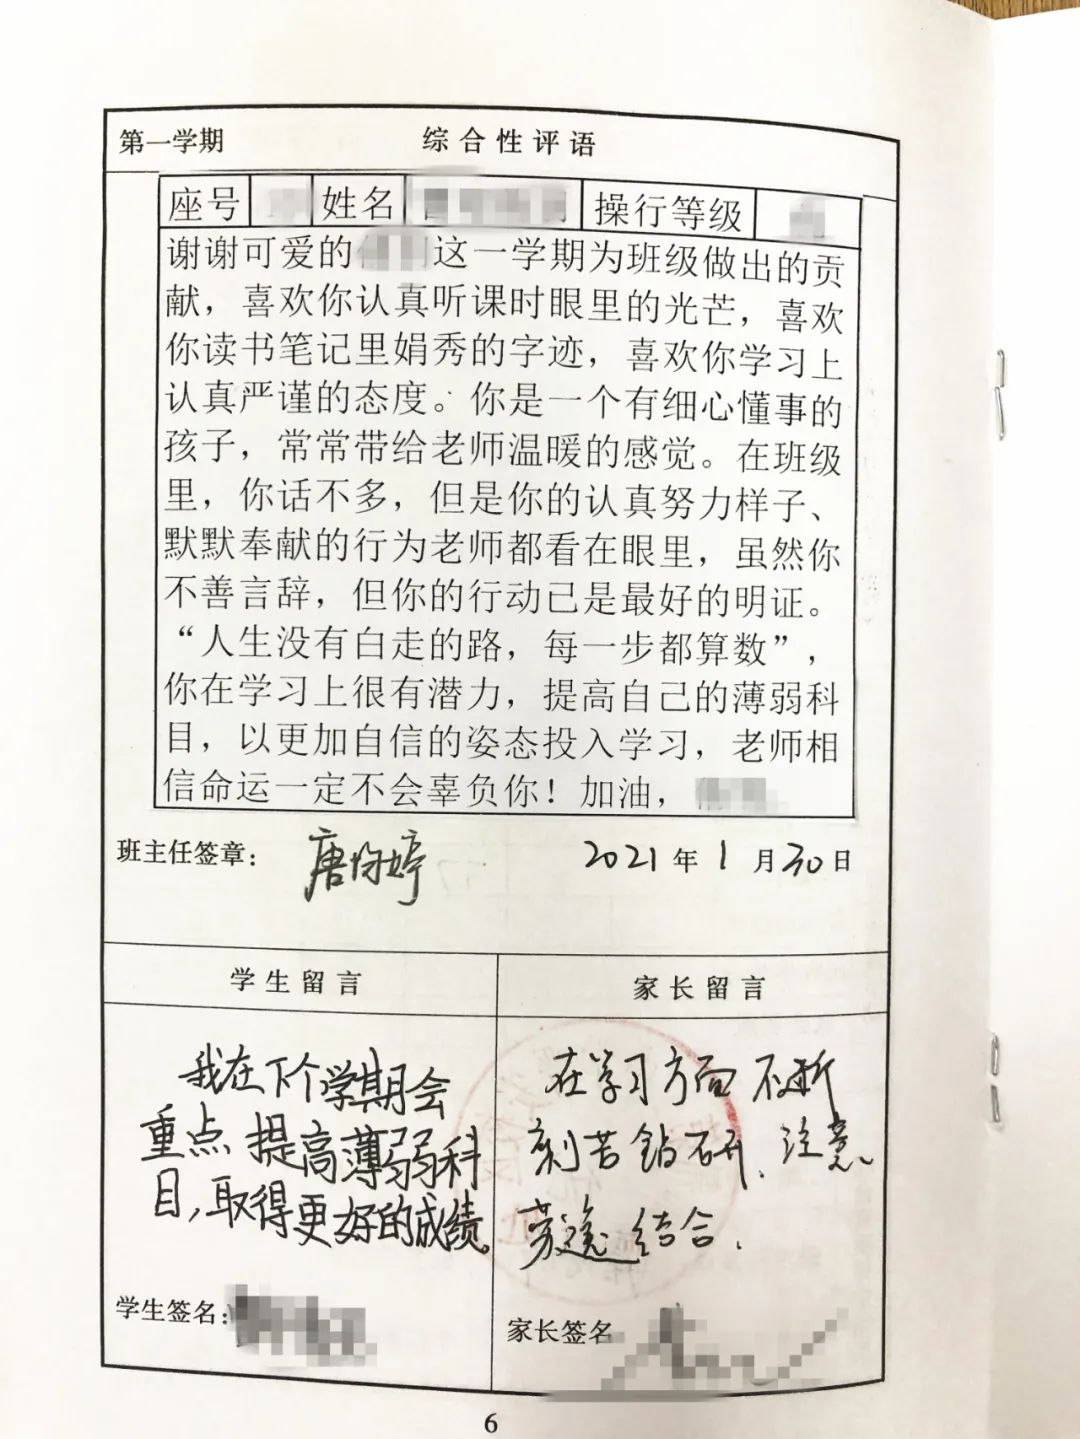 第一学期 综合性评语
座号 姓名 操行等级
谢谢可爱的 这一学期为班级做出的贡
献，喜欢你认真听课时眼里的光芒，喜欢
你读书笔记里娟秀的字迹，喜欢你学习上
认真严谨的态度。你是一个有细心懂事的
孩子，常常带给老师温暖的感觉。在班级
里，你话不多，但是你的认真努力样子、
默默奉献的行为老师都看在眼里，虽然你
不善言辞，但你的行动已是最好的明证。
“人生没有白走的路，每一步都算数”，
你在学习上很有潜力，提高自己的薄弱科
目，以更加自信的姿态投入学习，老师相
信命运一定不会辜负你！加油，
班主任签章： 唐 婷 2021年1月30日
学生留言 家长留言
我在下个学期会
重点提高薄弱科
目，取得更好的成绩。
在学习方面不断
刻苦钻研、注意
劳逸结合.
学生签名： 家长签名
6